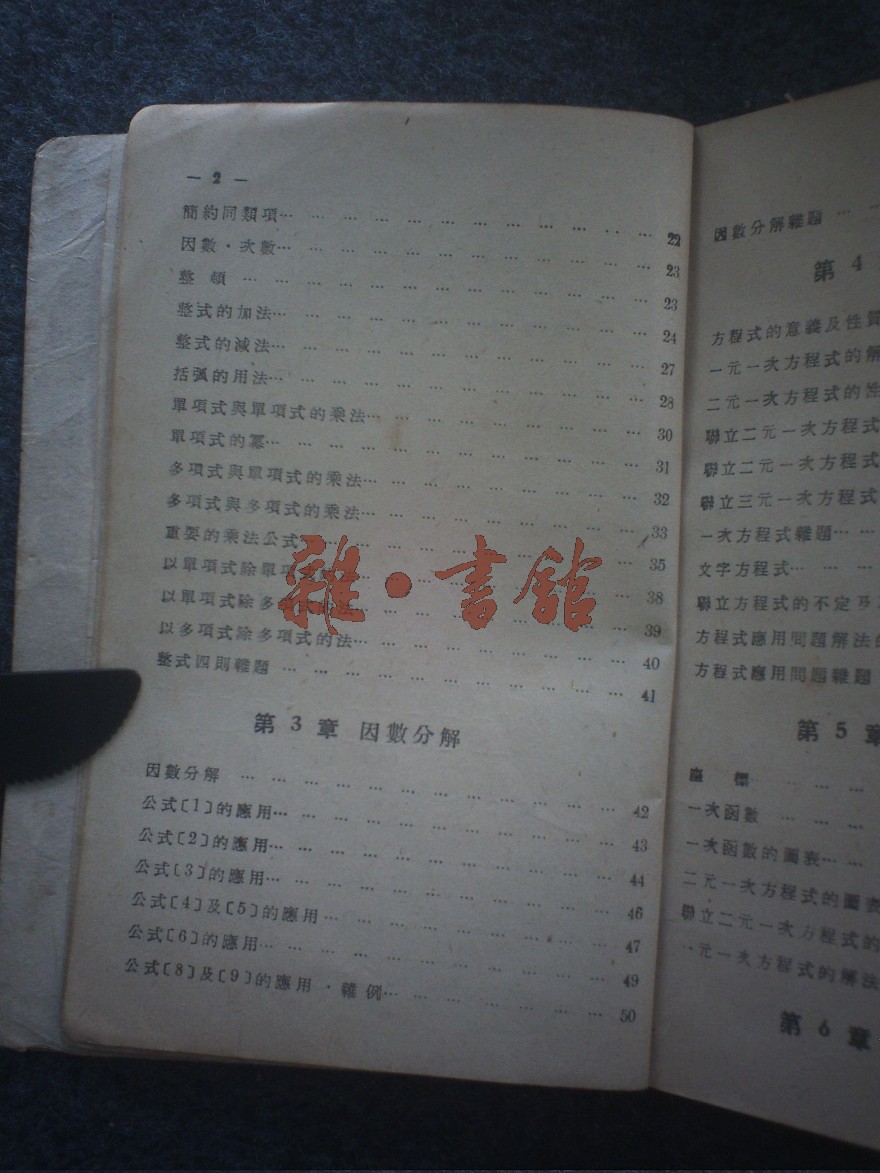 — 2 —
簡約同類項… … … … … … … … … … … … 22
因數・次數… … … … … … … … … … … … 23
整 頓 … … … … … … … … … … … … 23
整式的加法… … … … … … … … … … … … 24
整式的減法… … … … … … … … … … … … 27
括弧的用法… … … … … … … … … … … … 28
單項式與單項式的乘法… … … … … … … … … 30
單項式的冪… … … … … … … … … … … … 31
多項式與單項式的乘法… … … … … … … … … 32
多項式與多項式的乘法… … … … … … … … … 33
重要的乘法公式… … … … … … … 35
以單項式除單項 … … … … 38
以單項式除多項式 法… … … … 39
以多項式除多項式的法… … … … … … … … … 40
整式四則雜題 … … … … … … … … … … … 41
第 3 章 因數分解
因數分解 … … … … … … … … … … … … 42
公式〔1〕的應用… … … … … … … … … … … 43
公式〔2〕的應用… … … … … … … … … … … 44
公式〔3〕的應用… … … … … … … … … … … 46
公式〔4〕及〔5〕的應用… … … … … … … … … 47
公式〔6〕的應用… … … … … … … … … … … 49
公式〔8〕及〔9〕的應用・雜例… … … … … … … 50
雜・書舘
因數分解雜題 … …
第 4
方程式的意義及性質
一元一次方程式的解
二元一次方程式的性
聯立二元一次方程式
聯立二元一次方程式
聯立三元一次方程式
一次方程式雜題… …
文字方程式… … …
聯立方程式的不定及
方程式應用問題解法的
方程式應用問題雜題
第 5 章
座 標 … …
一次函數 … … …
一次函數的圖表… …
二元一次方程式的圖表
聯立二元一次方程式的
一元一次方程式的解法
第 6 章